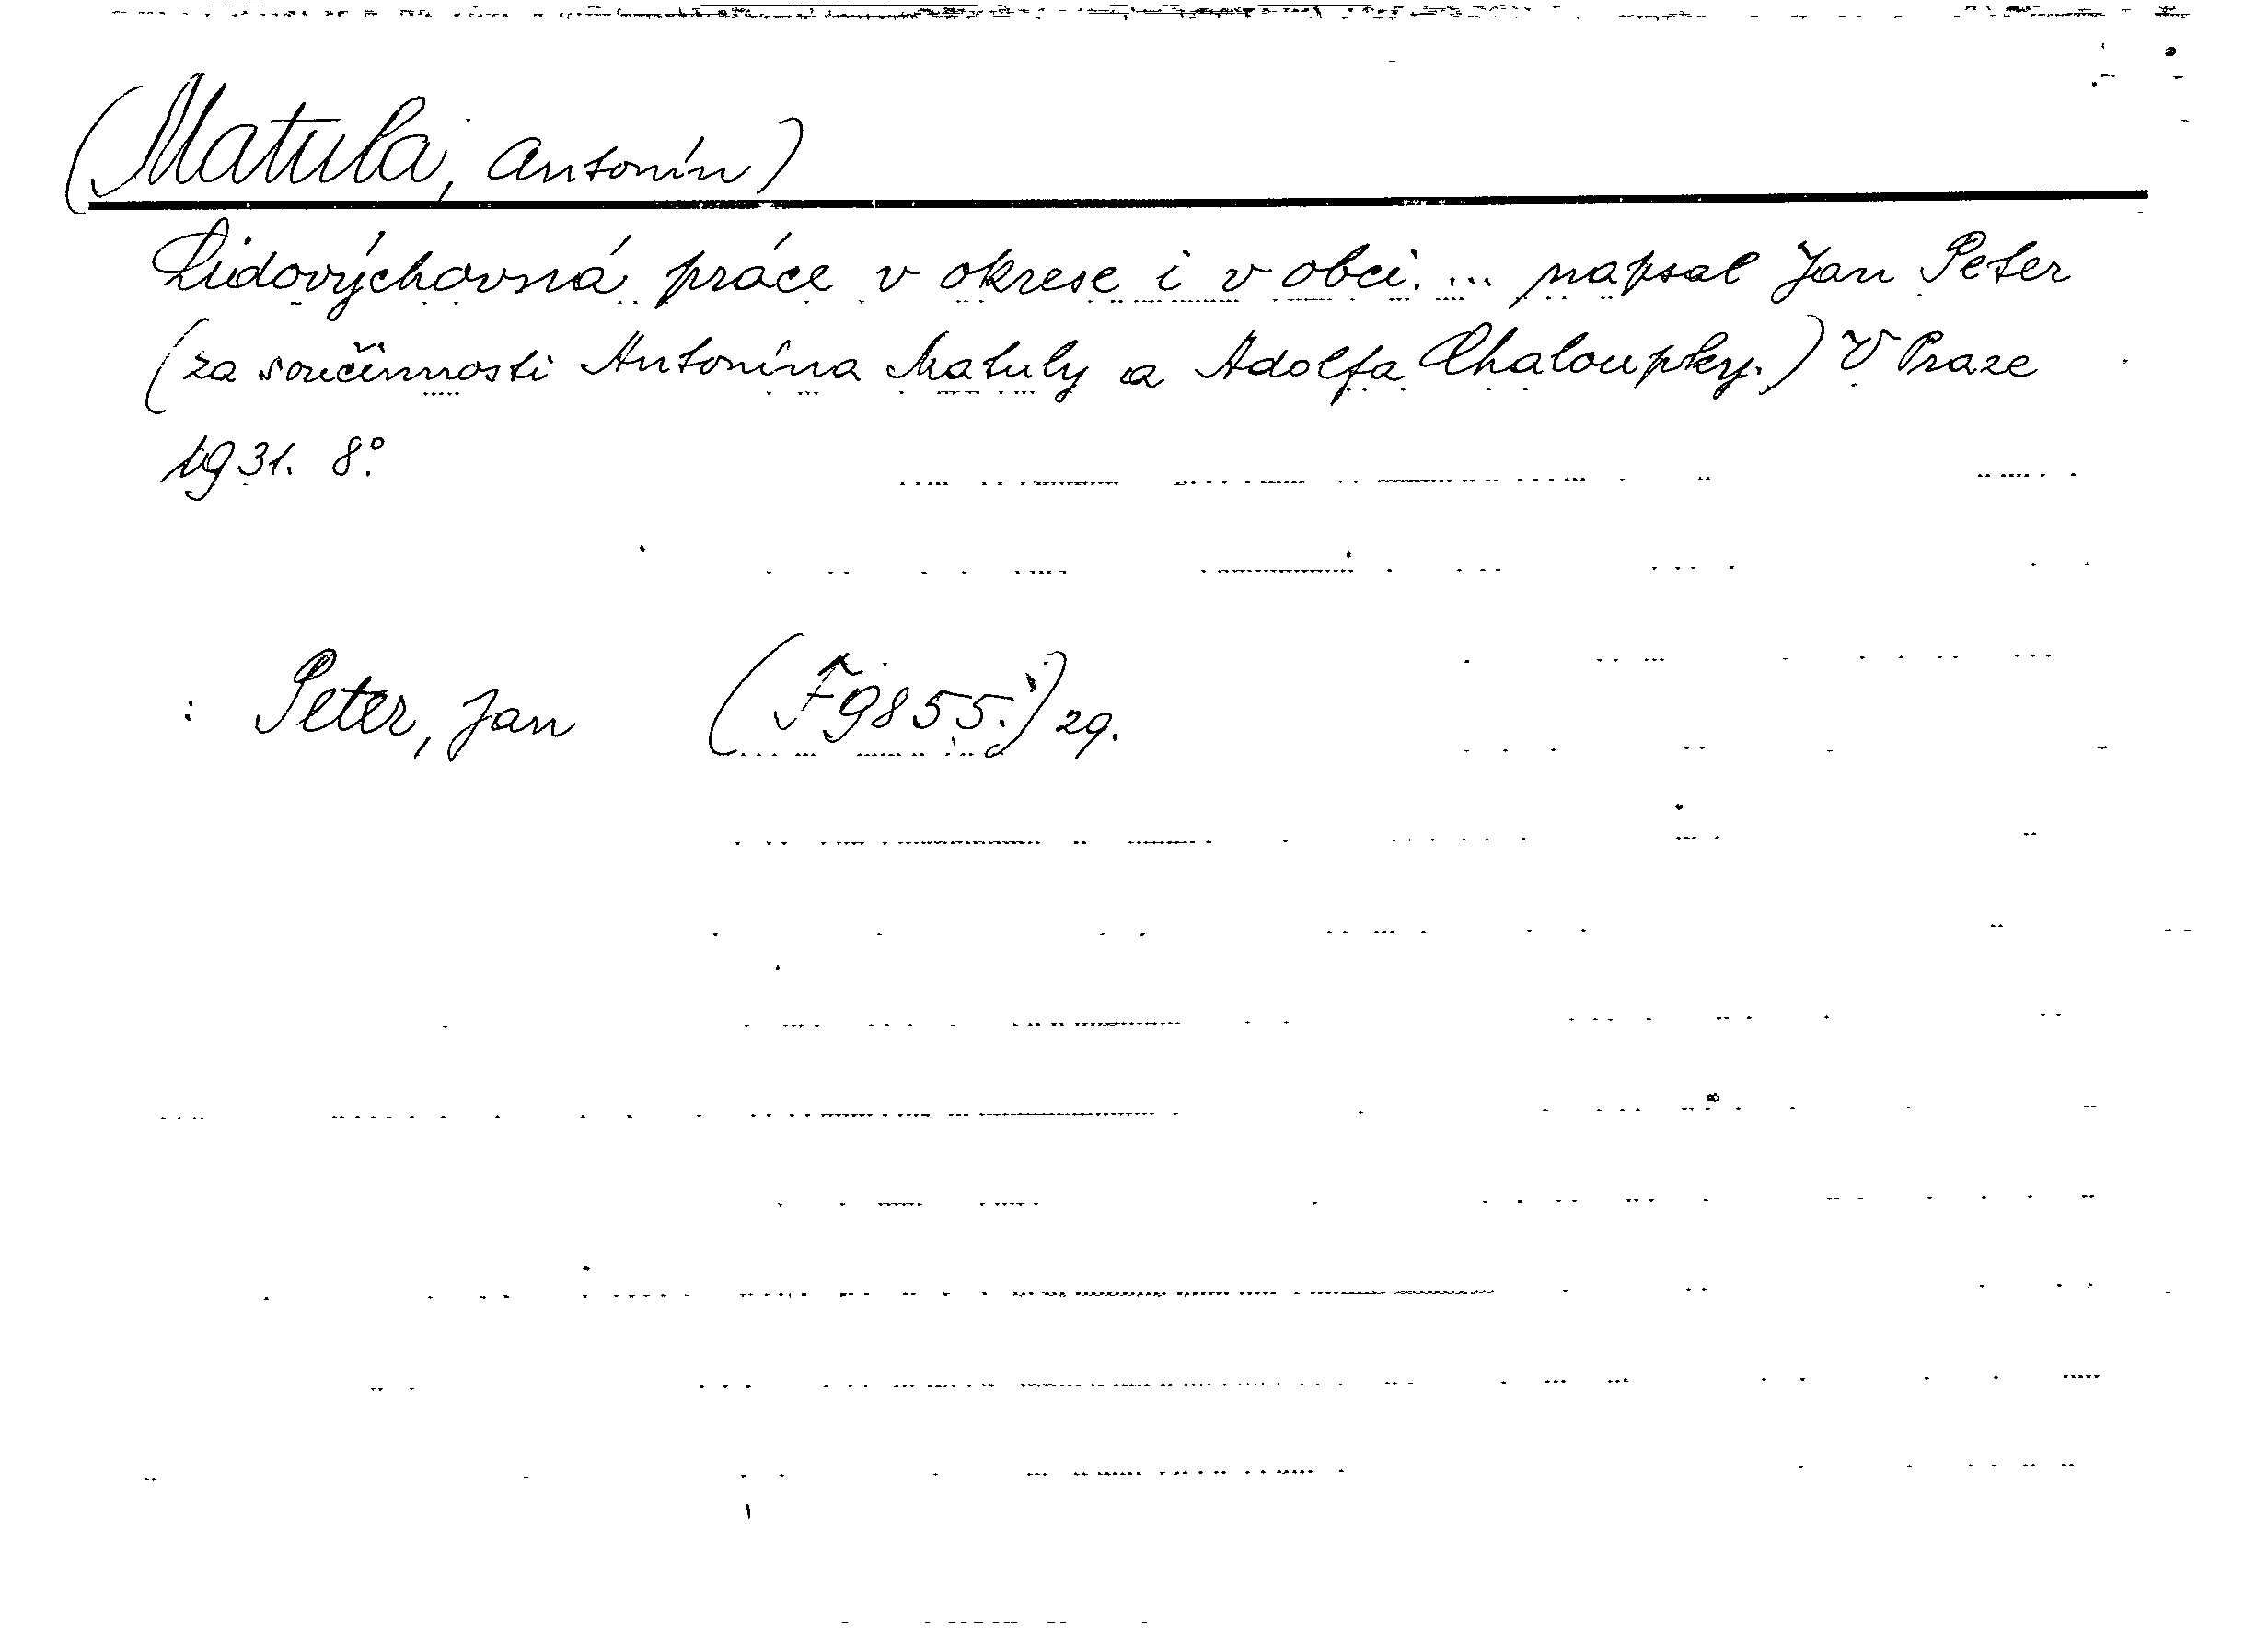 (Matula, Antonín)
Lidovýchovná práce v okrese i v obci. ... napsal Jan Peter
(za součinnosti Antonína Matuly a Adolfa Chaloupky.) V Praze
1931. 8°.
: Peter, Jan (F9855.) 29.